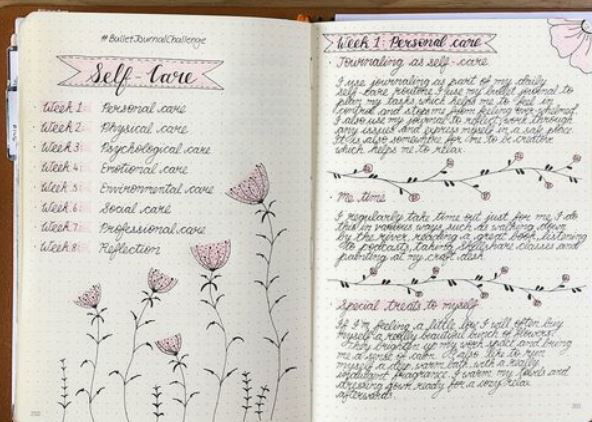 #BulletJournalChallenge
Self-Care
Week 1: Personal care
Week 2: Physical care
Week 3: Psychological care
Week 4: Emotional care
Week 5: Environmental care
Week 6: Social care
Week 7: Professional care
Week 8: Reflection
Week 1: Personal care
· Journaling as self-care
I use journaling as part of my daily
self-care routine. I use my bullet journal to
plan my tasks which helps me to feel in
control and stops me from feeling overwhelmed.
I also use my journal to reflect, work through
any issues and express myself in a safe place.
It is also somewhere for me to be creative
which helps me to relax.
· Me time
I regularly take time out just for me. I do
this in various ways such as walking down
by the river, reading a great book, listening
to podcasts, taking Skillshare classes and
painting at my craft desk.
· Special treats to myself
If I'm feeling a little low I will often buy
myself a really beautiful bunch of flowers.
They brighten up my work space and bring
me a sense of calm. I also like to run
myself a deep warm bath with a really
indulgent fragrance. I warm my towels and
dressing gown ready for a cosy relax
afterwards.